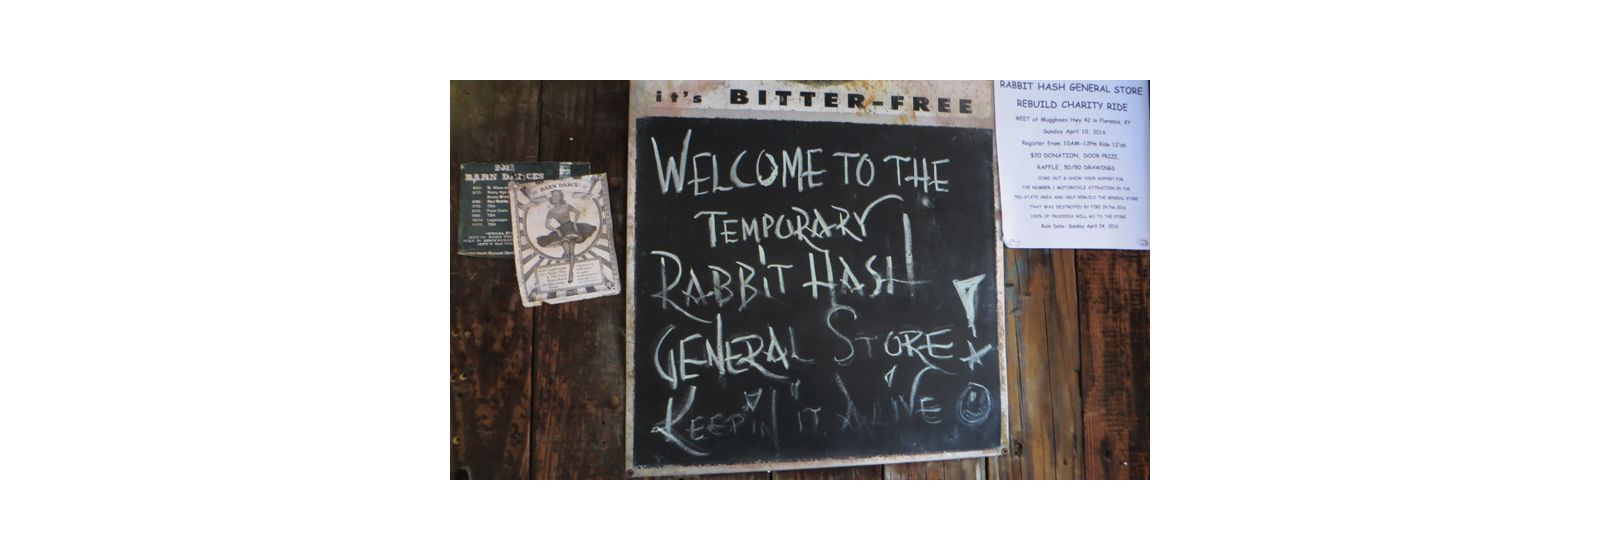 it's BITTER-FREE
WELCOME TO THE
TEMPORARY
RABBiT HASH
GENERAL STORE!
KEEPIN' IT ALIVE
RABBIT HASH GENERAL STORE
REBUILD CHARITY RIDE
MEET at Muggbees Hwy 42 in Florence, KY
Sunday April 10, 2016
Register from 10AM-12Pm Ride 12'ish
$20 DONATION, DOOR PRIZE,
RAFFLE, 50/50 DRAWINGS
COME OUT & SHOW YOUR SUPPORT FOR
THE NUMBER 1 MOTORCYCLE ATTRACTION IN THE
TRI-STATE AREA AND HELP REBUILD THE GENERAL STORE
THAT WAS DESTROYED BY FIRE IN Feb 2016
100% OF PROCEEDS WILL GO TO THE STORE
Rain Date: Sunday April 24, 2016
BARN DANCES
BARN DANCE!